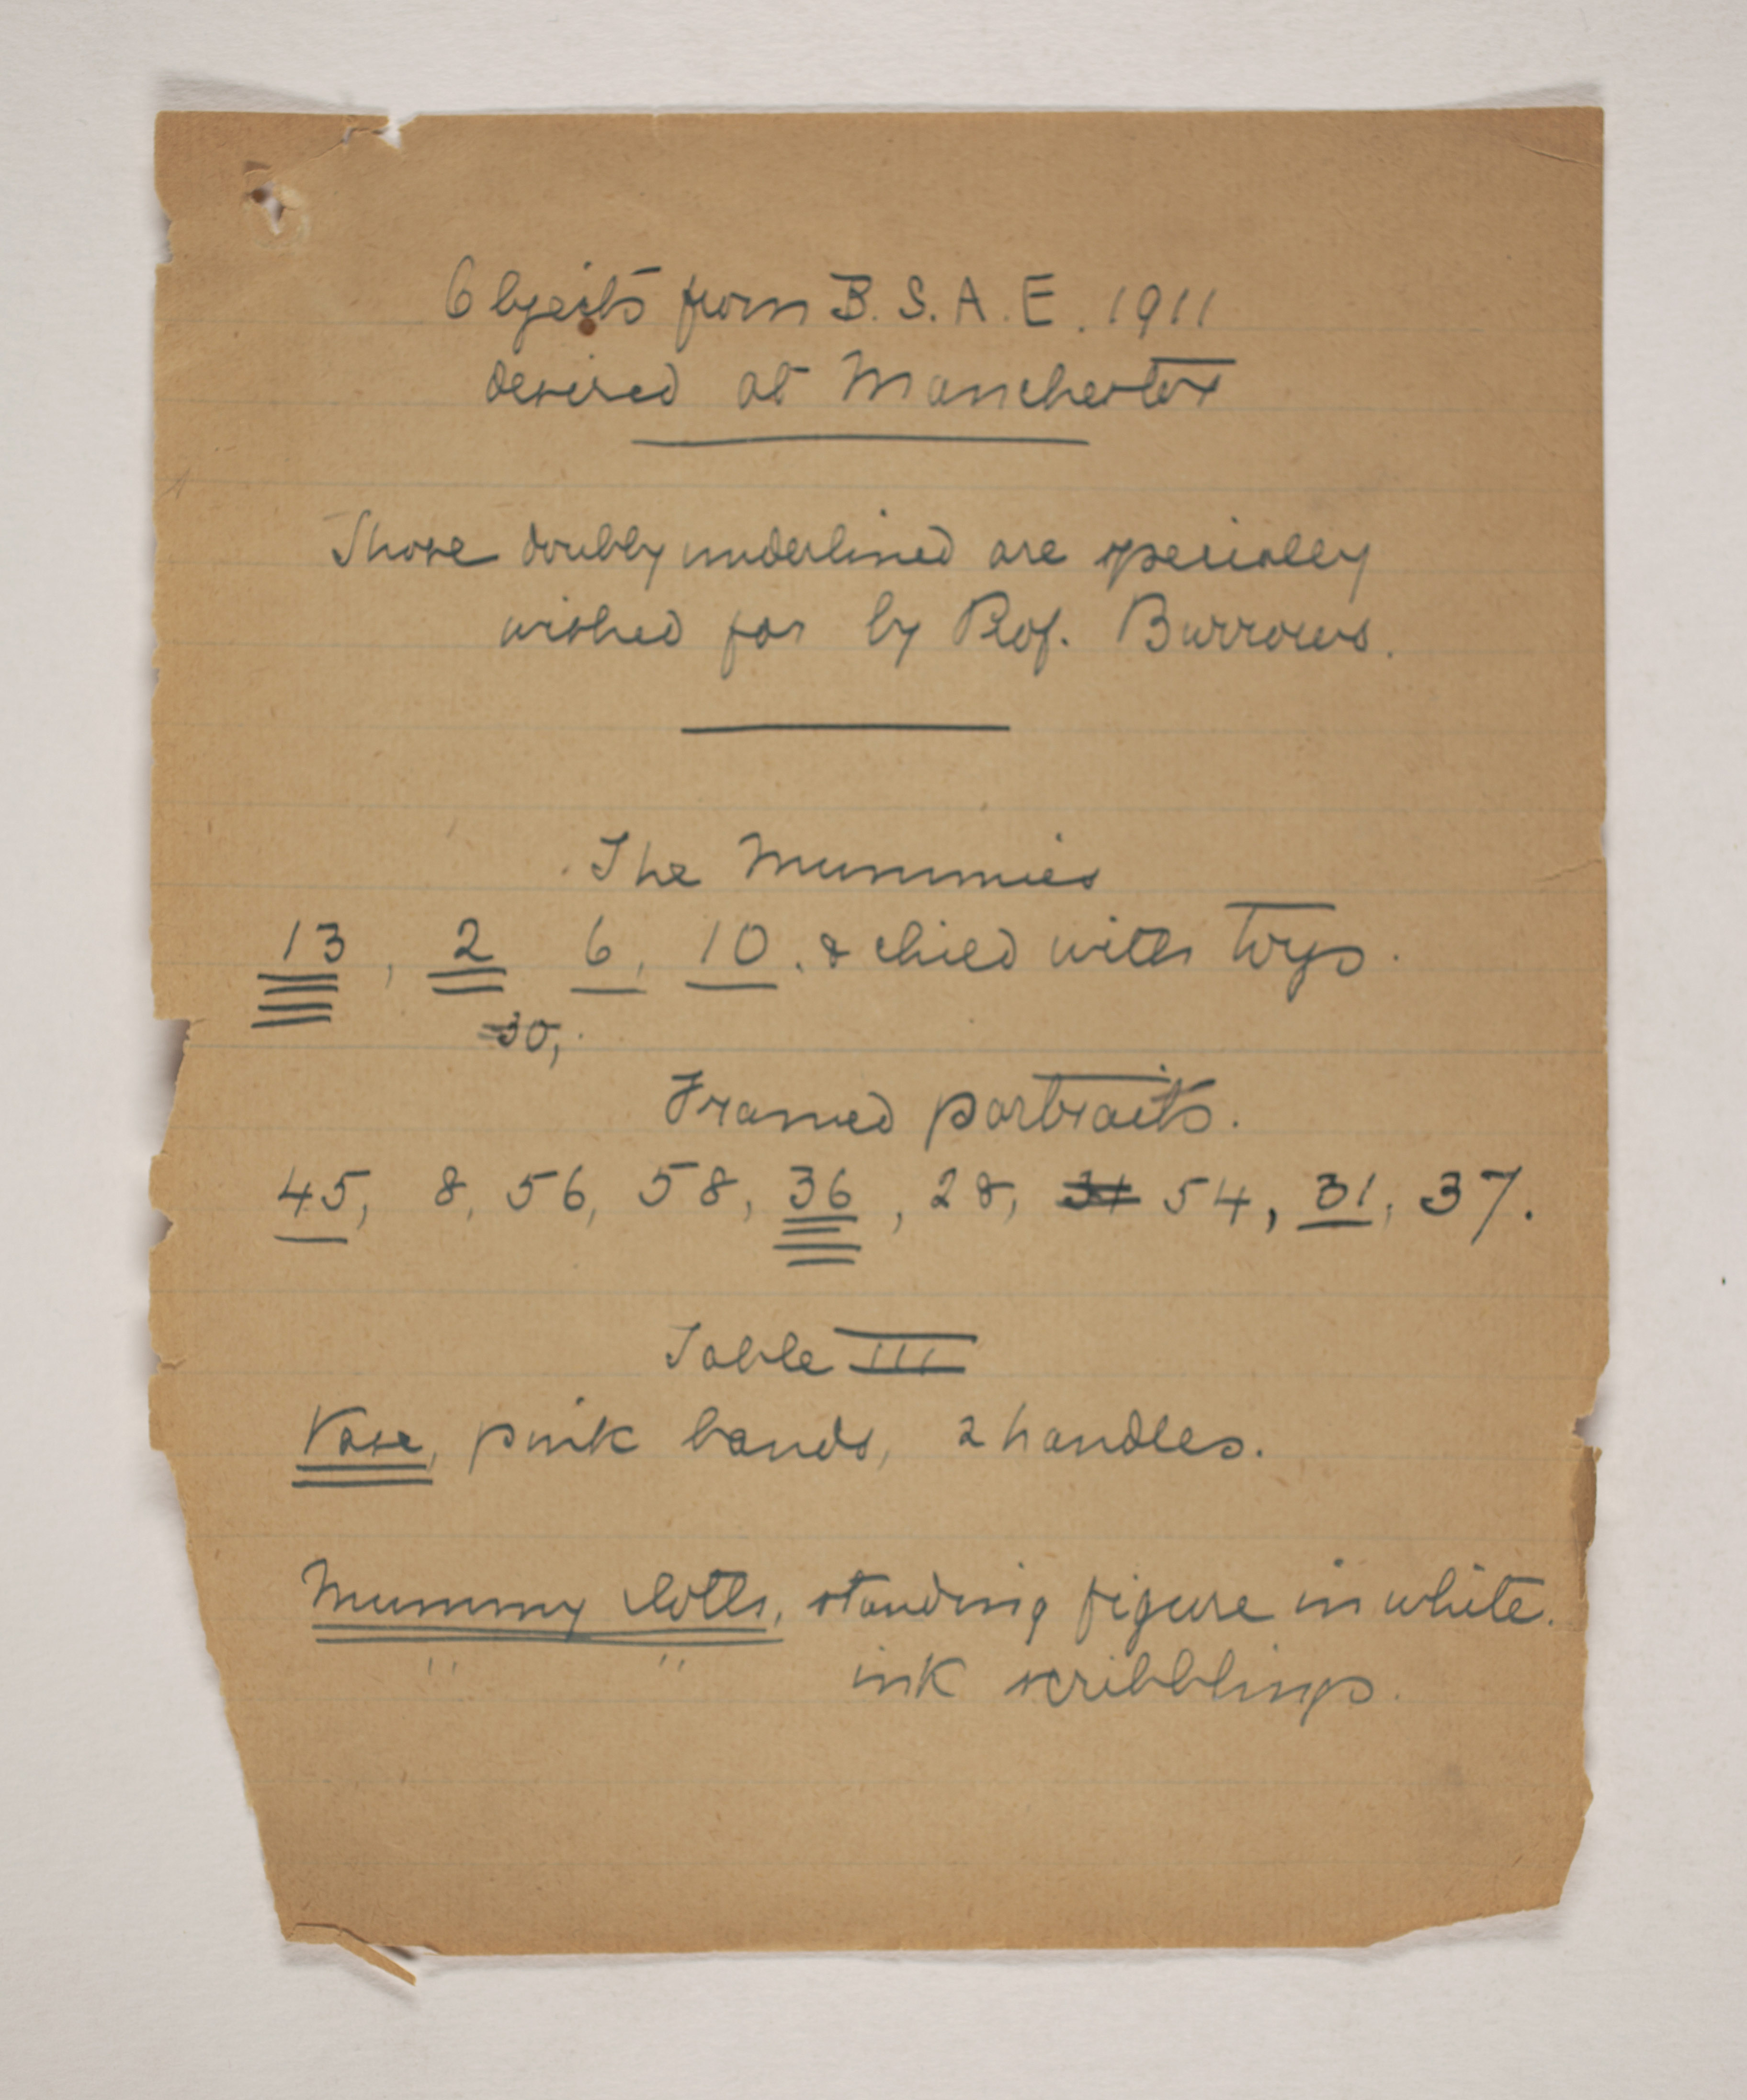 Objects from B.S.A.E. 1911
desired at Manchester
Those doubly underlined are specially
wished for by Prof. Burrows.
The Mummies
13, 2 6, 10. & child with toys.
30,
Framed portraits.
45, 8, 56, 58, 36, 28, 31 54, 31, 37.
Table III
Vase, pink bands, 2 handles.
Mummy cloth, standing figure in white.
" " ink scribblings.